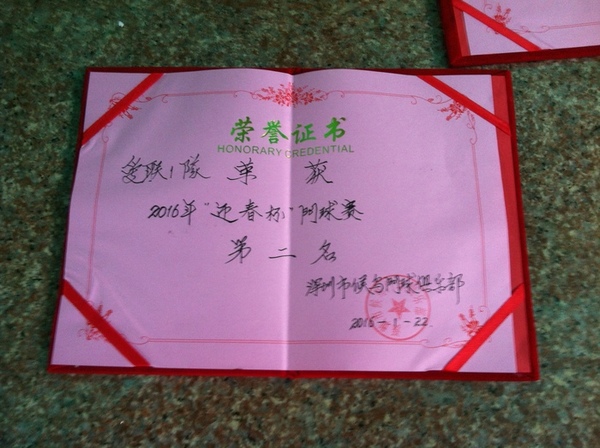 荣誉证书
HONORARY CREDENTIAL
爱联1隊 荣 获
2016年"迎春杯"门球赛
第二名
深圳市候鸟门球俱乐部
2016-1-22